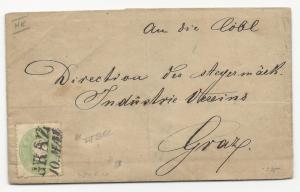 An die Löbl
Direction des steyermärk.
Industrie Vereins
Graz.
GRAZ